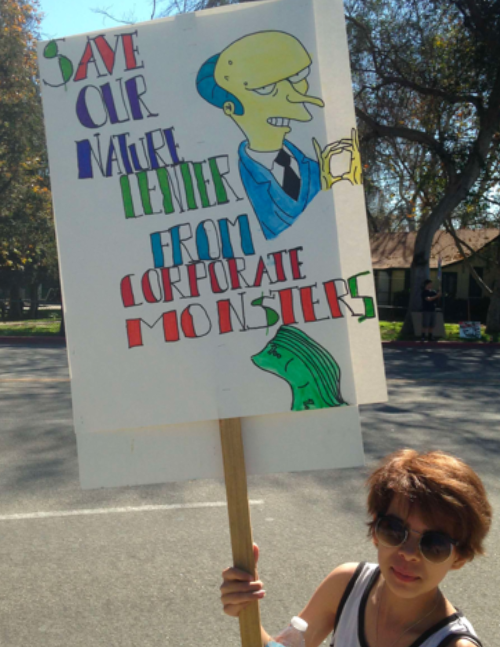 $AVE
OUR
NATURE
CENTER
FROM
CORPORATE
MON$TER$